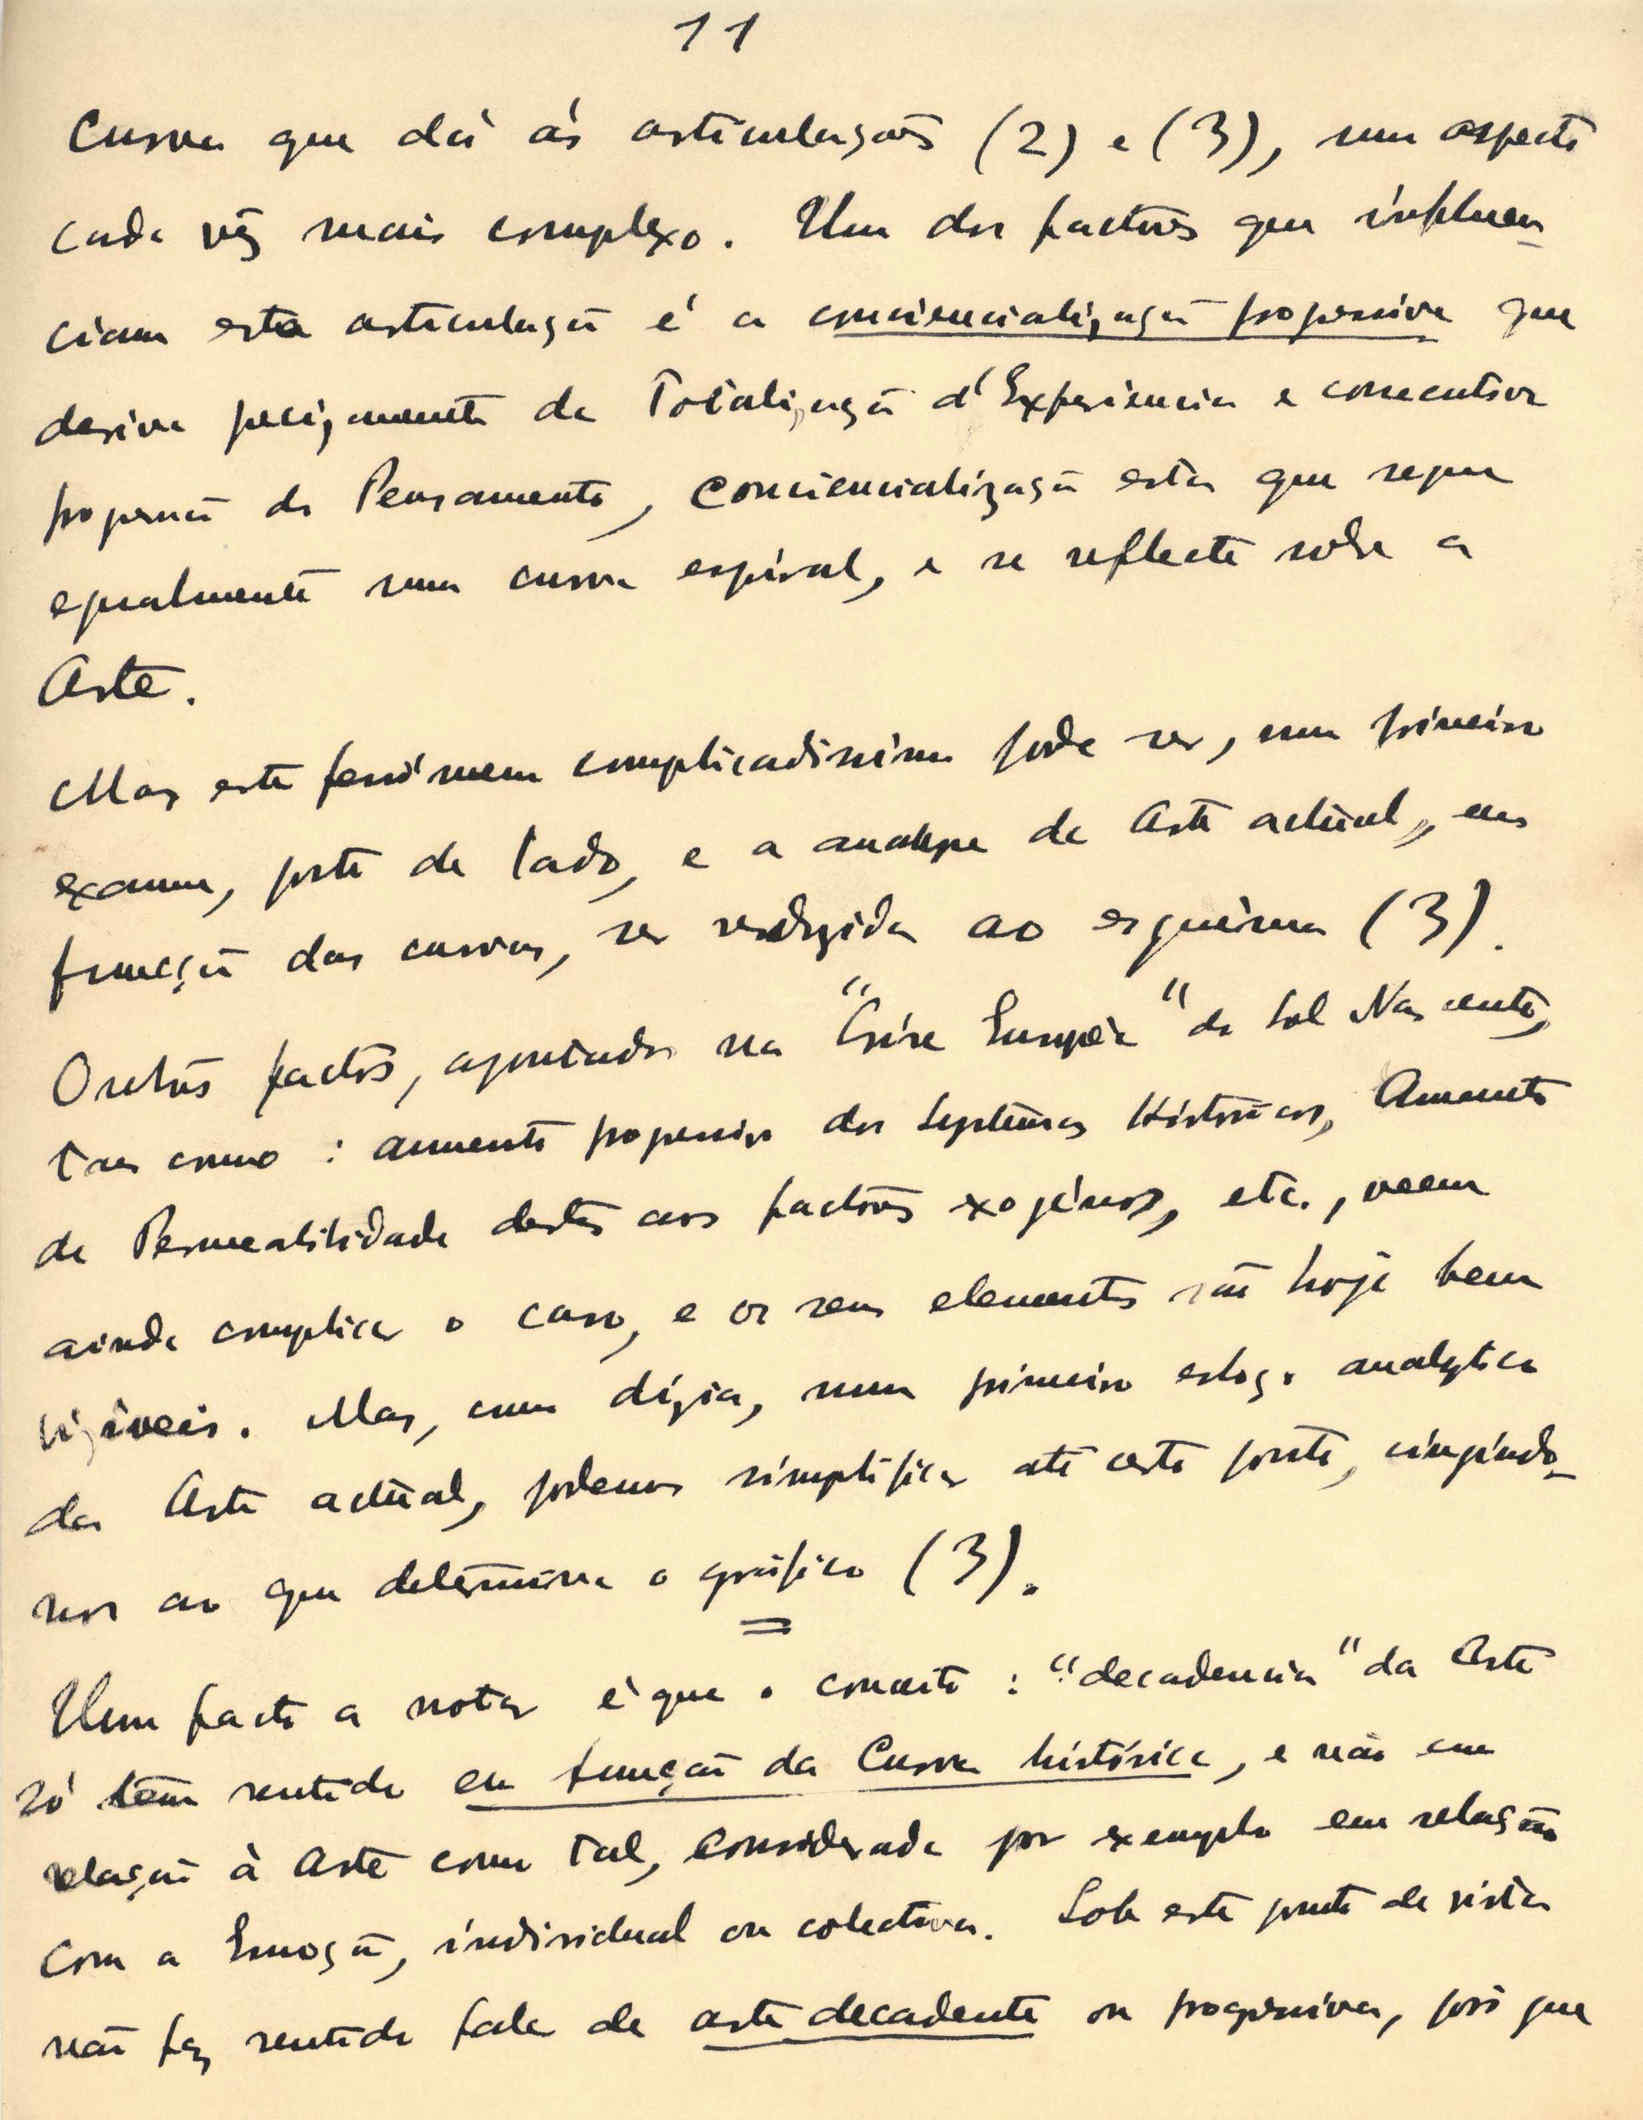 11
Curva que dá ás articulações (2) e (3), um aspecto
cada vês mais complexo. Um dos factores que influen-
ciam esta articulação é a consciencialização progressiva que
deriva precizamente da Totalização d'Experiencia e consecutiva
progressão do Pensamento, consciencialização esta que segue
egualmente uma curva espiral, e se reflecte sobre a
Arte.
Mas este fenómeno complicadissimo pode ser, num primeiro
exame, posto de lado, e a analyse da Arte actual, em
função das curvas, ser reduzida ao esquema (3).
Outros factos, apontados na "Crise Europêa" do Sol Nascente,
taes como : aumento progressivo dos Systemas Históricos, Aumento
de Permeabilidade destes aos factores exogénos, etc., veem
ainda complicar o caso, e os seus elementos são hoje bem
vizíveis. Mas, como dizia, num primeiro esboço analytico
da Arte actual, podemos simplificar até certo ponto, cingindo-
nos ao que determina o gráfico (3).
=
Um facto a notar é que o conceito : "decadencia" da Arte
só tem sentido em função da Curva histórica, e não em
relação à Arte como tal, considerada por exemplo em relação
com a Emoção, individual ou colectiva. Sob este ponto de vista
não faz sentido falar de arte decadente ou progressiva, pois que